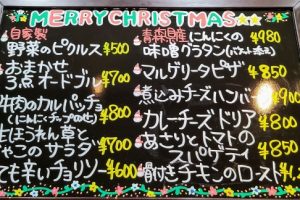 MERRY CHRISTMAS☆☆
自家製
野菜のピクルス ¥500
おまかせ
3点オードブル ¥700
牛肉のカルパッチョ
(にんにくチップのせ) ¥800
ほうれん草と
じゃこのサラダ ¥700
ても辛いチョリソー ¥600
青森県産にんにくの ¥980
味噌グラタン(バゲット添え)
マルゲリータピザ ¥850
煮込みチーズハンバ ¥900
カレーチーズドリア ¥800
あさりとトマトの
スパゲティ ¥850
骨付きチキンのロースト ¥1,